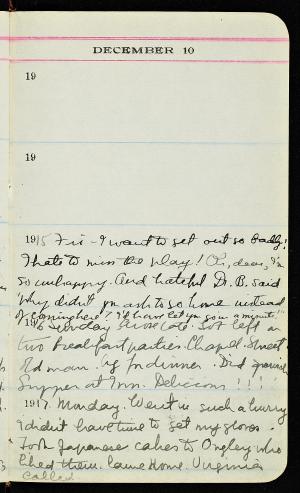 DECEMBER 10
19
19
1915 Fri - I want to get out so badly!
I hate to miss the play! Oh, dear, I'm
so unhappy. And hateful Dr. B. said
"Why didn't you ask to go home instead
of coming here? I'd have let you go in a minute!"
1916 Sunday. Arose late. Got left on
two breakfast parties. Chapel. Street
Ed man. for dinner. Did
Supper at Mrs. Delicious!!!!
1917. Monday. Went in such a hurry
I didn't have time to get my gloves.
Took Japanese cakes to who
liked them. Came Home. Virginia
called